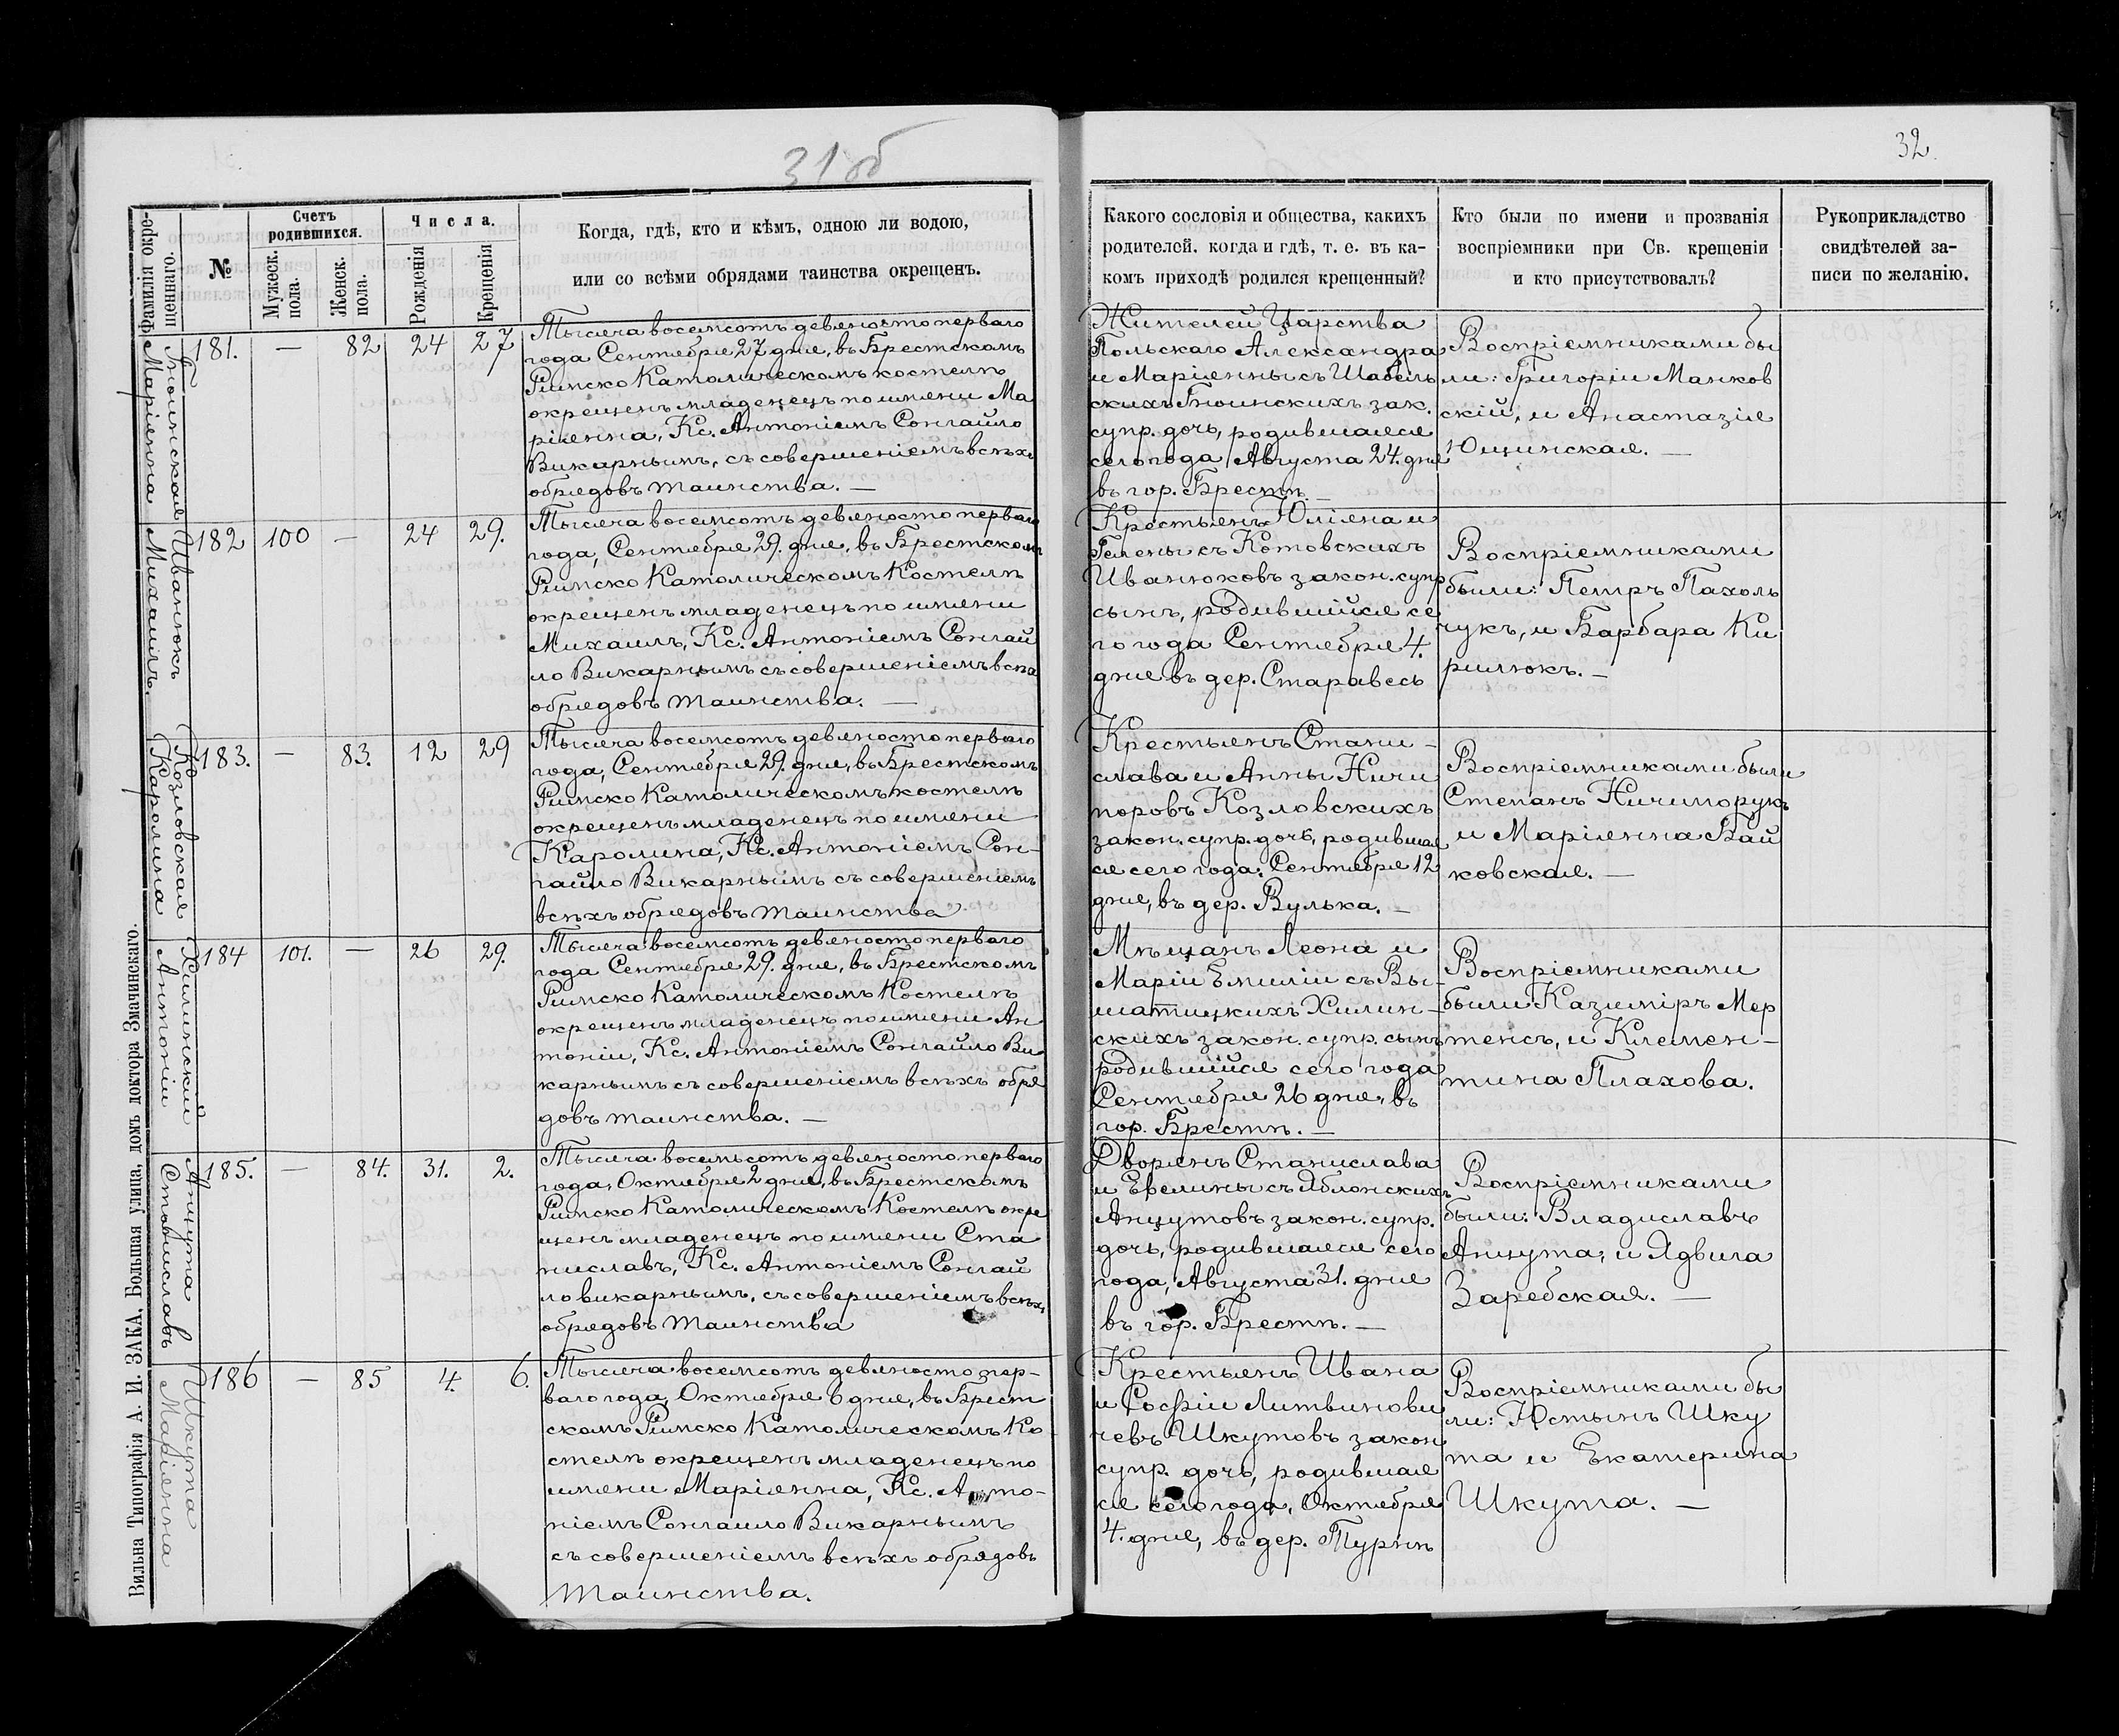 31 об
32.
Фамилія окре-
щеннаго.
№
Счетъ
родившихся.
Мужеск.
пола.
Женск.
пола.
Числа.
Рожденія
Крещенія
Когда, гдѣ, кто и кѣмъ, одною ли водою,
или со всѣми обрядами таинства окрещенъ.
Какого сословія и общества, какихъ
родителей. когда и гдѣ, т. е. въ ка-
комъ приходѣ родился крещенный?
Кто были по имени и прозванія
воспріемники при Св. крещеніи
и кто присутствовалъ?
Рукоприкладство
свидѣтелей за-
писи по желанію.
Маріянна
181. — 82 24 27
Тысяча восемсотъ девяносто перваго
года Сентября 27 дня, въ Брестскомъ
Римско Католическомъ костелѣ
окрещенъ младенецъ по имени Ма
ріянна, Кс. Антоніемъ Сонгайло
Викарнымъ, съ совершеніемъ всѣхъ
обрядовъ таинства. —
Жителей Царства
Польскаго Александра
и Маріянны съ Шабель
скихъ зак.
супр. дочь, родившаяся
сего года Августа 24. дня
въ гор. Брестѣ. —
Воспріемниками бы
ли: Григоріи Манков
скій, и Анастазія
Ющинская. —
Иванюкъ
Михаилъ.
182 100 — 24 29.
Тысяча восемсотъ девяносто перваго
года, Сентября 29. дня, въ Брестскомъ
Римско Католическомъ Костелѣ
окрещенъ младенецъ по имени
Михаилъ, Кс. Антоніемъ Сонгай
ло Викарнымъ съ совершеніемъ всѣхъ
обрядовъ таинства. —
Крестьянъ Юліяна и
Гелены съ Котовскихъ
Иванюковъ закон. супр
сынъ, родившійся се
го года Сентября 4.
дня въ дер. Старавесь
Воспріемниками
были: Петръ Пахоль
чукъ, и Барбара Ки
рилюкъ. —
Козловская
Каролина
183. — 83. 12 29
Тысяча восемсотъ девяносто перваго
года, Сентября 29. дня, въ Брестскомъ
Римско Католическомъ костелѣ
окрещенъ младенецъ по имени
Каролина, Кс. Антоніемъ Сон-
гайло Викарнымъ съ совершеніемъ
всѣхъ обрядовъ таинства
Крестьянъ Стани-
слава и Анны Ничи
поровъ Козловскихъ
закон. супр. дочь, родившая
ся сего года, Сентября 12
дня, въ дер. Вулька. —
Воспріемниками были
Степанъ Ничипорукъ
и Маріянна Бай
ковская. —
Хилинскій
Антоніи
184 101. — 26 29.
Тысяча восемсотъ девяносто перваго
года Сентября 29. дня, въ Брестскомъ
Римско Католическомъ Костелѣ
окрещенъ младенецъ по имени Ан
тоніи, Кс. Антоніемъ Сонгайло Ви
карнымъ съ совершеніемъ всѣхъ обря
довъ таинства. —
Мѣщанъ Леона и
Маріи Емиліи съ Вы-
шатицкихъ Хилин-
скихъ закон. супр. сынъ
родившійся сего года
Сентября 26 дня, въ
гор. Брестѣ. —
Воспріемниками
были Казиміръ Мер
тенсъ, и Клемен-
тина Плахова.
Анцута
Станиславъ
185. — 84. 31. 2.
Тысяча восемьсотъ девяносто перваго
года, Октября 2 дня, въ Брестскомъ
Римско Католическомъ Костелѣ окре
щенъ младенецъ по имени Ста
ниславъ, Кс. Антоніемъ Сонгай
ло викарнымъ, съ совершеніемъ всѣхъ
обрядовъ таинства
Дворянъ Станислава
и Евелины съ Яблонскихъ
Анцутовъ закон. супр.
дочь, родившаяся сего
года, Августа 31. дня
въ гор. Брестѣ. —
Воспріемниками
были: Владиславъ
Анцута, и Ядвига
Заребская. —
Шкута
Маріянна
186 — 85 4. 6.
Тысяча восемсотъ девяносто пер-
ваго года, Октября 6 дня, въ Брест
скомъ Римско Католическомъ Ко-
стелѣ окрещенъ младенецъ по
имени Маріянна, Кс. Анто-
ніемъ Сонгаило Викарнымъ
съ совершеніемъ всѣхъ обрядовъ
таинства.
Крестьянъ Ивана
и Софіи Литвинови
чевъ Шкутовъ закон
супр. дочь, родившая
ся сего года, Октября
4. дня, въ дер. Турнѣ
Воспріемниками бы
ли: Юстынъ Шку
та и Екатерина
Шкута. —
Вильна Типографія А. И. ЗАКА, Большая улица, домъ доктора Змачинскаго.